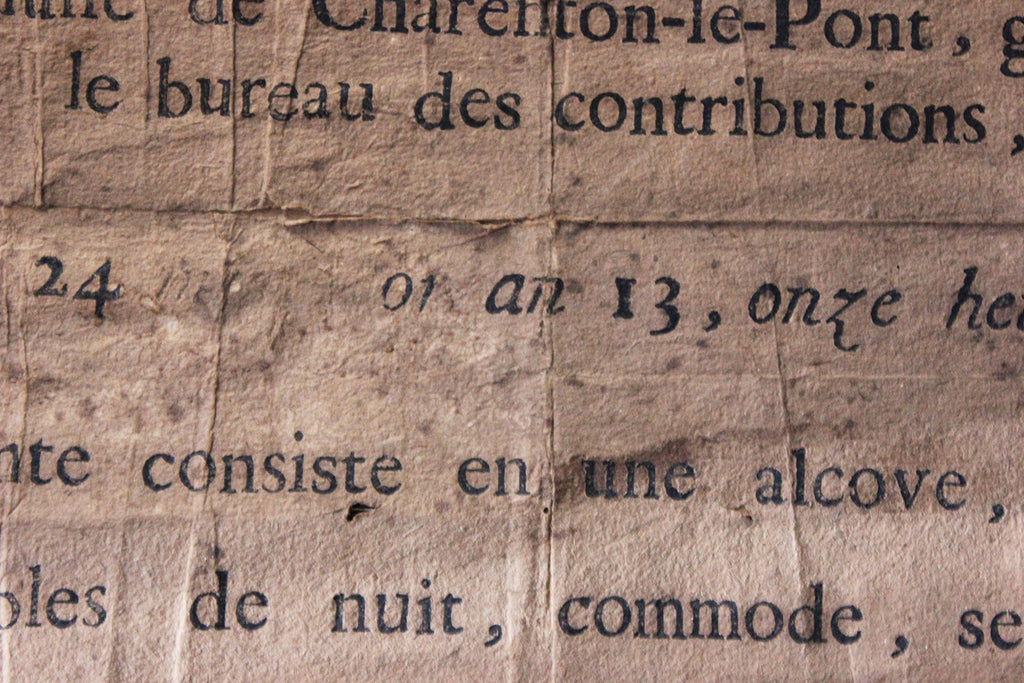 de Charenton-le-Pont, g
le bureau des contributions,
24 an 13, onze heu
nte consiste en une alcove,
bles de nuit, commode, se